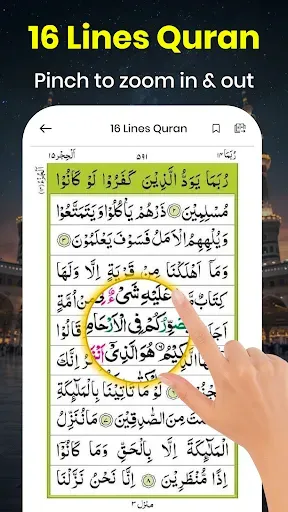 16 Lines Quran
Pinch to zoom in & out
16 Lines Quran
رُبَمَا ١٤ ٥٩١ اَلْحِجْر ١٥
رُبَمَا يَوَدُّ الَّذِيْنَ كَفَرُوْا لَوْ كَانُوْا
مُسْلِمِيْنَ ٢ ذَرْهُمْ يَاْكُلُوْا وَيَتَمَتَّعُوْا
وَيُلْهِهِمُ الْاَمَلُ فَسَوْفَ يَعْلَمُوْنَ ٣
وَمَاۤ اَهْلَكْنَا مِنْ قَرْيَةٍ اِلَّا وَلَهَا
كِتَابٌ عَلَيْهِ شَيْءٌ مِنْ اُمَّةٍ
فِي الْاَرْحَامِ قَالُوْا
هُوَ الَّذِيْۤ اِنَّكَ
تَاْتِيْنَا بِالْمَلٰٓئِكَةِ
مِنَ الصّٰدِقِيْنَ ٧ مَا نُنَزِّلُ
الْمَلٰٓئِكَةَ اِلَّا بِالْحَقِّ وَمَا كَانُوْۤا
اِذًا مُّنْظَرِيْنَ ٨ اِنَّا نَحْنُ نَزَّلْنَا
منزل ٣